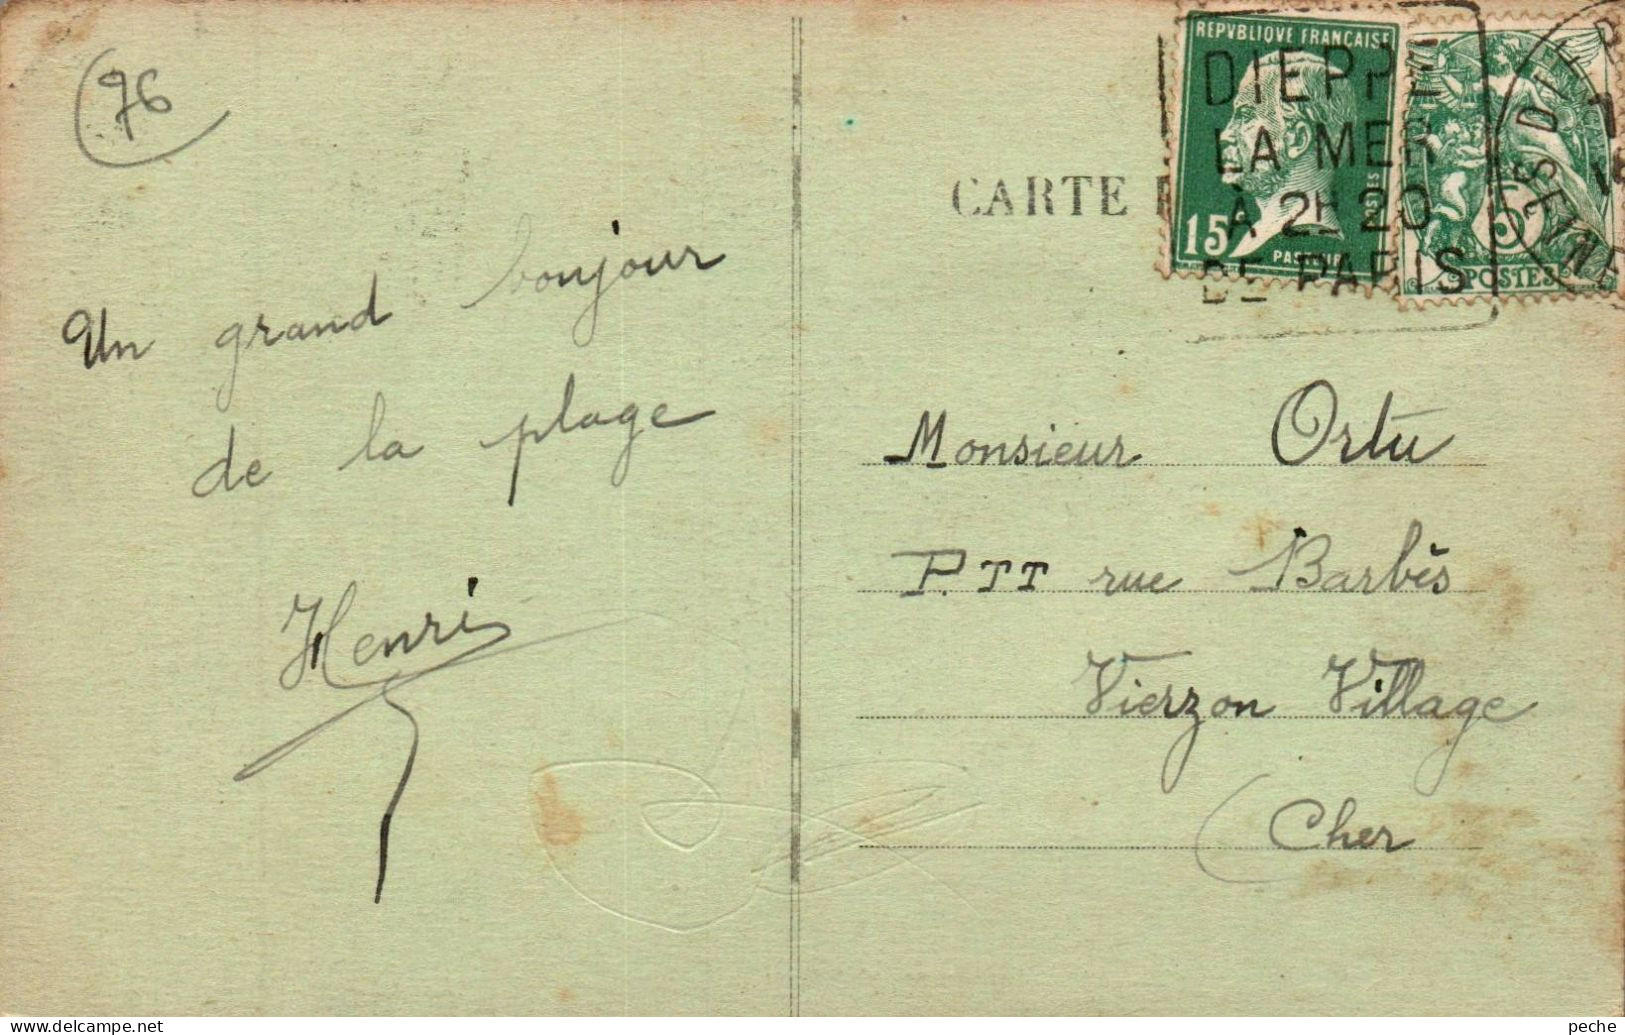 76
Un grand bonjour
de la plage
Henri
CARTE
REPVBLIQUE FRANÇAISE
15
POSTES
5
POSTES
DIEPPE
LA MER
À 2H20
DE PARIS
DIEPPE
SEINE
Monsieur Ortu
P.TT rue Barbès
Vierzon Village
(Cher
peche Delcampe.net